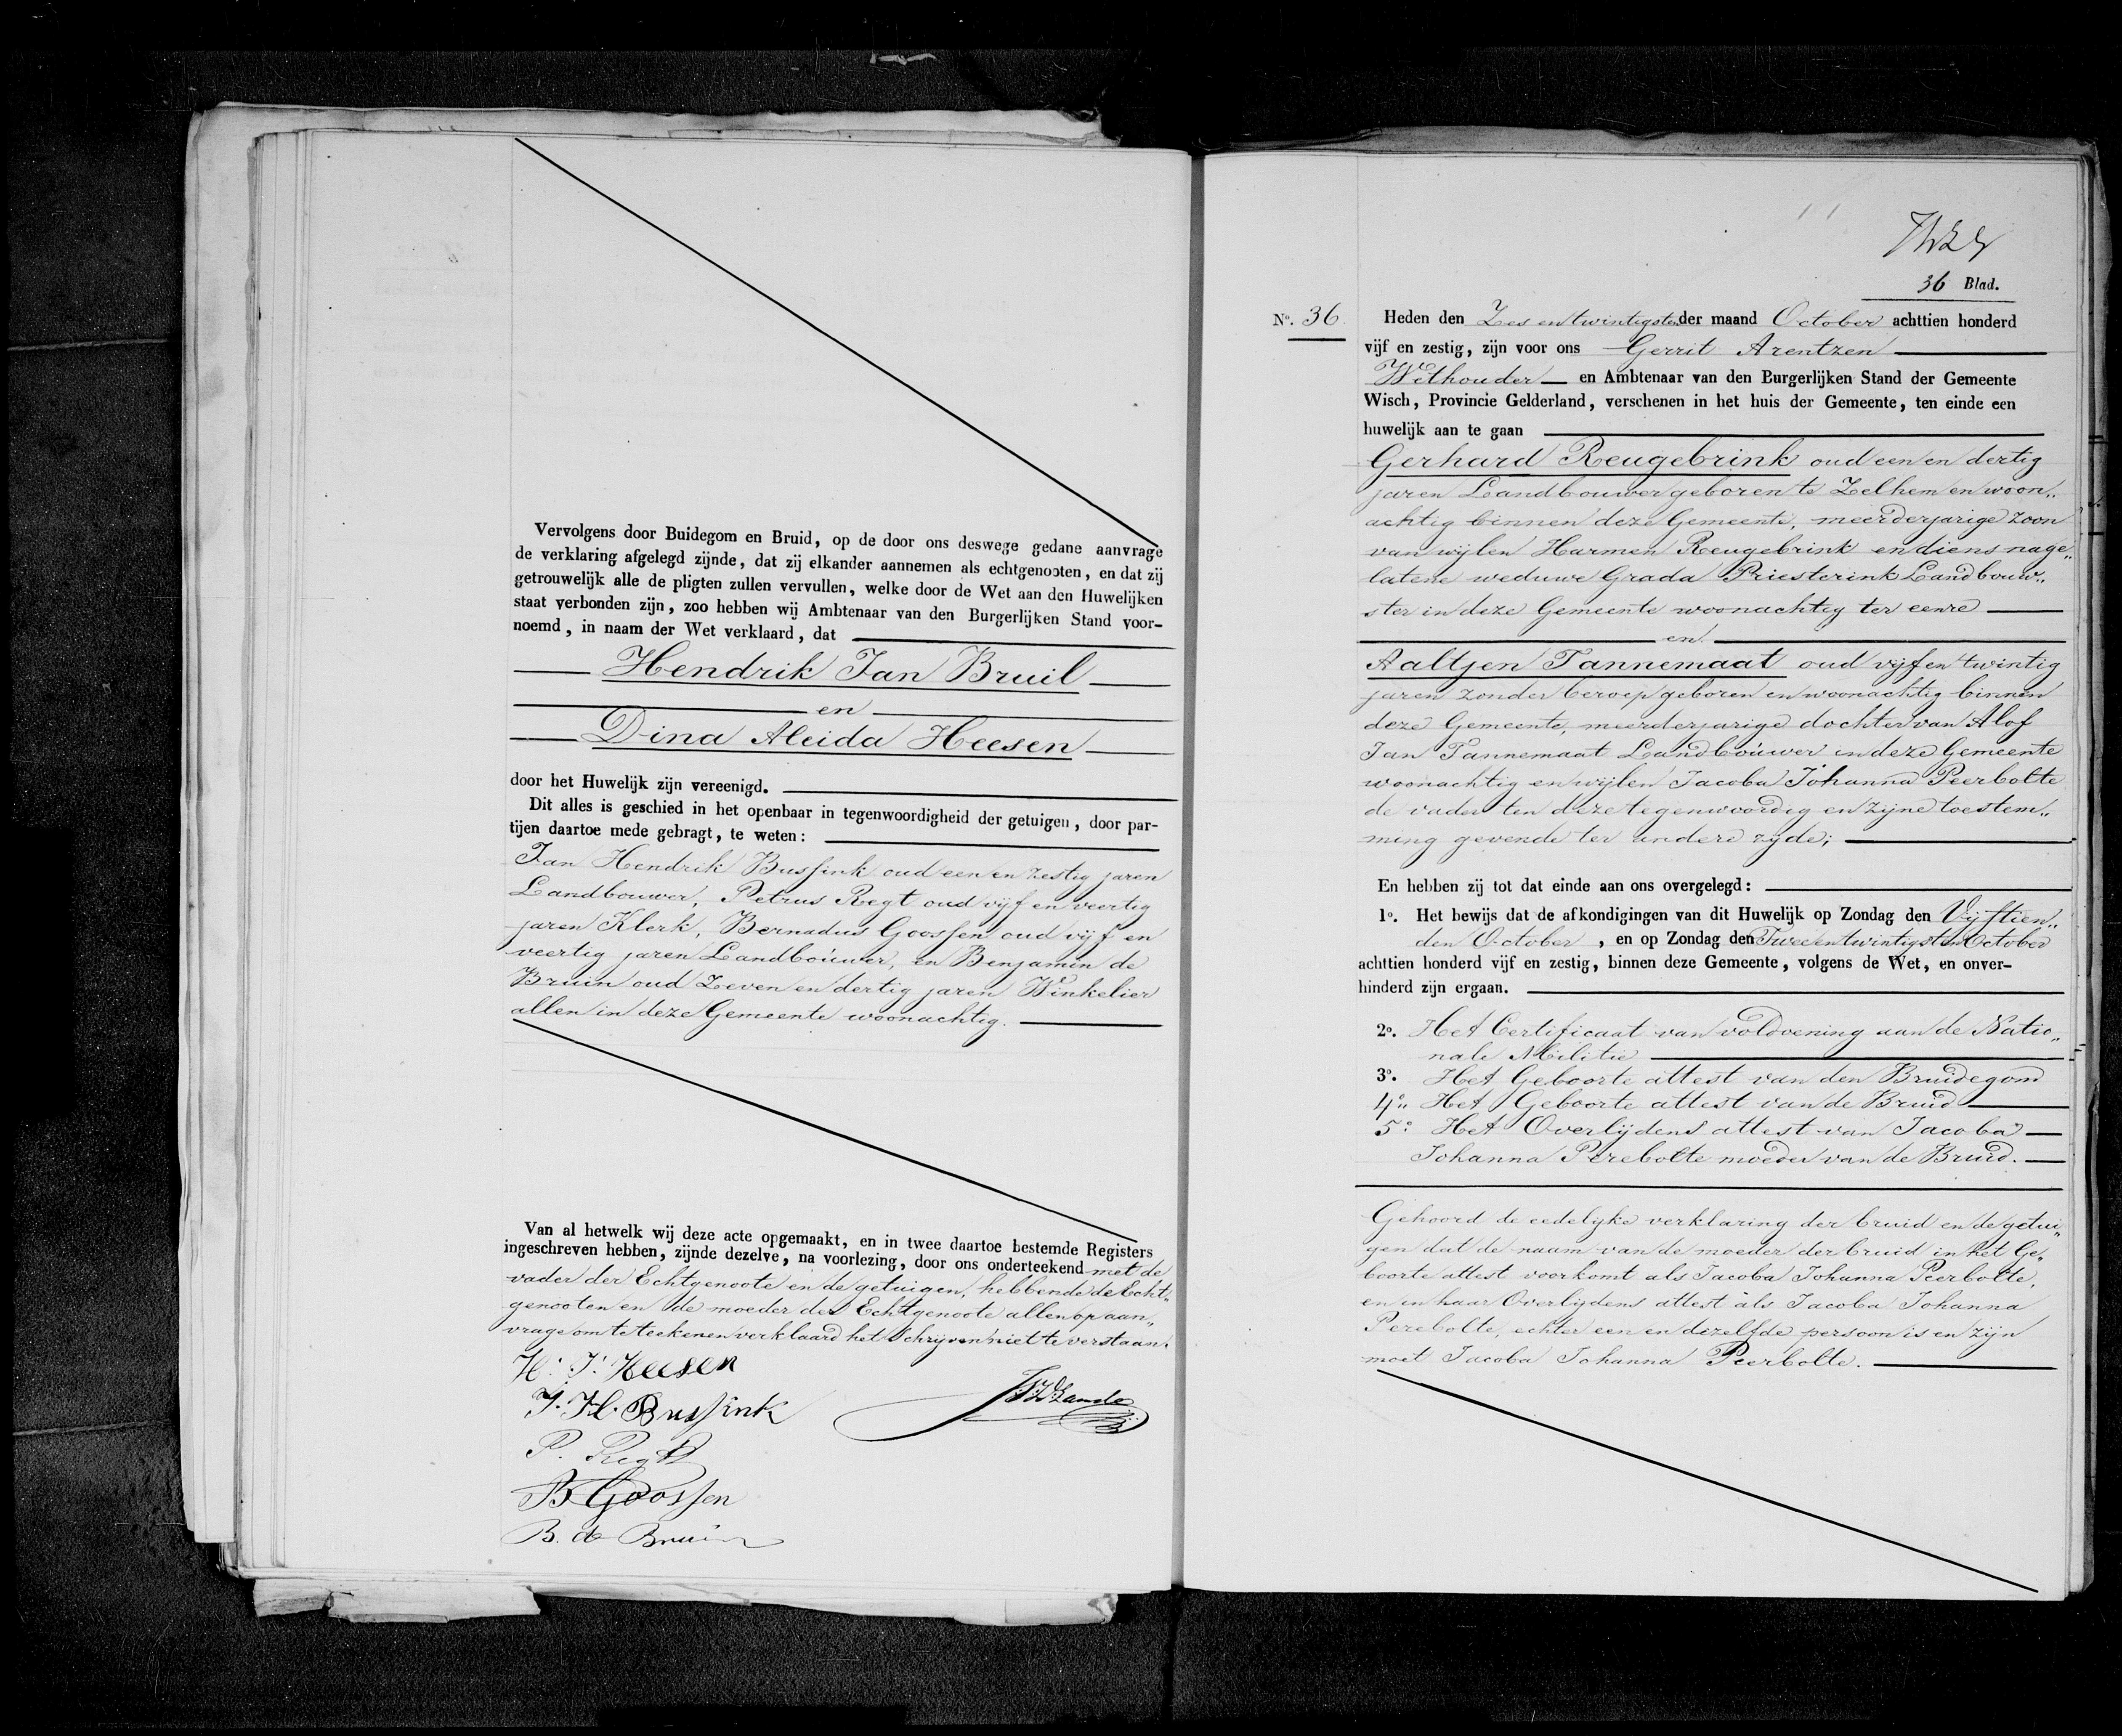 Vervolgens door Buidegom en Bruid, op de door ons deswege gedane aanvrage
de verklaring afgelegd zijnde, dat zij elkander aannemen als echtgenooten, en dat zij
getrouwelijk alle de pligten zullen vervullen, welke door de Wet aan den Huwelijken
staat verbonden zijn, zoo hebben wij Ambtenaar van den Burgerlijken Stand voor-
noemd, in naam der Wet verklaard, dat
Hendrik Jan Bruil
en
Dina Aleida Heesen
door het Huwelijk zijn vereenigd.
Dit alles is geschied in het openbaar in tegenwoordigheid der getuigen, door par-
tijen daartoe mede gebragt, te weten:
Jan Hendrik Bussink oud een en zestig jaren
Landbouwer, Petrus Regt oud vijf en veertig
jaren Klerk, Bernadus Goossen oud vijf en
veertig jaren Landbouwer, en Benjamin de
Bruin oud Zeven en dertig jaren Winkelier
allen in deze Gemeente woonachtig.
Van al hetwelk wij deze acte opgemaakt, en in twee daartoe bestemde Registers
ingeschreven hebben, zijnde dezelve, na voorlezing, door ons onderteekend met de
vader der Echtgenoote en de getuigen, hebbende de Echt„
genooten en de moeder der Echtgenoote allen op aan„
vrage om te teekenen verklaard het Schrijven niet te verstaan.
H. J. Heesen
J. H. Bussink
P. Regt
B Goossen
B. de Bruin
36 Blad.
No. 36.
Heden den Zes en twintigsten der maand October achttien honderd
vijf en zestig, zijn voor ons Gerrit Arentzen
Wethouder en Ambtenaar van den Burgerlijken Stand der Gemeente
Wisch, Provincie Gelderland, verschenen in het huis der Gemeente, ten einde een
huwelijk aan te gaan
Gerhard Reugebrink oud een en dertig
jaren Landbouwer geboren te Zelhem en woon„
achtig binnen deze Gemeente, meerderjarige zoon
van wijlen Harmen Reugebrink en diens nage„
latene weduwe Grada Priesterink Landbouw„
ster in deze Gemeente woonachtig ter eenre
en
Aaltjen Tannemaat oud vijf en twintig
jaren zonder beroep geboren en woonachtig binnen
deze Gemeente, meerderjarige dochter van Alof
Jan Tannemaat Landbouwer in deze Gemeente
woonachtig en wijlen Jacoba Johanna Peerbolte
de vader ten deze tegenwoordig en zijne toestem„
ming gevende ter andere zyde;
En hebben zij tot dat einde aan ons overgelegd:
1o. Het bewijs dat de afkondigingen van dit Huwelijk op Zondag den Vijftien„
den October, en op Zondag den Twee en twintigsten October
achttien honderd vijf en zestig, binnen deze Gemeente, volgens de Wet, en onver-
hinderd zijn ergaan.
2o. Het Certificaat van voldoening aan de Natio„
nale Militie
3o. Het Geboorte attest van den Bruidegom
4o. Het Geboorte attest van de Bruid
5o. Het Overlijdens attest van Jacoba
Johanna Perebolte moeder van de Bruid.
Gehoord de eedelyke verklaring der bruid en de getui„
gen dat de naam van de moeder der bruid in het Ge„
boorte attest voorkomt als Jacoba Johanna Peerbolte,
en in haar Overlijdens attest als Jacoba Johanna
Perebolte, echter een en dezelfde persoon is en zijn
moet Jacoba Johanna Peerbolte.